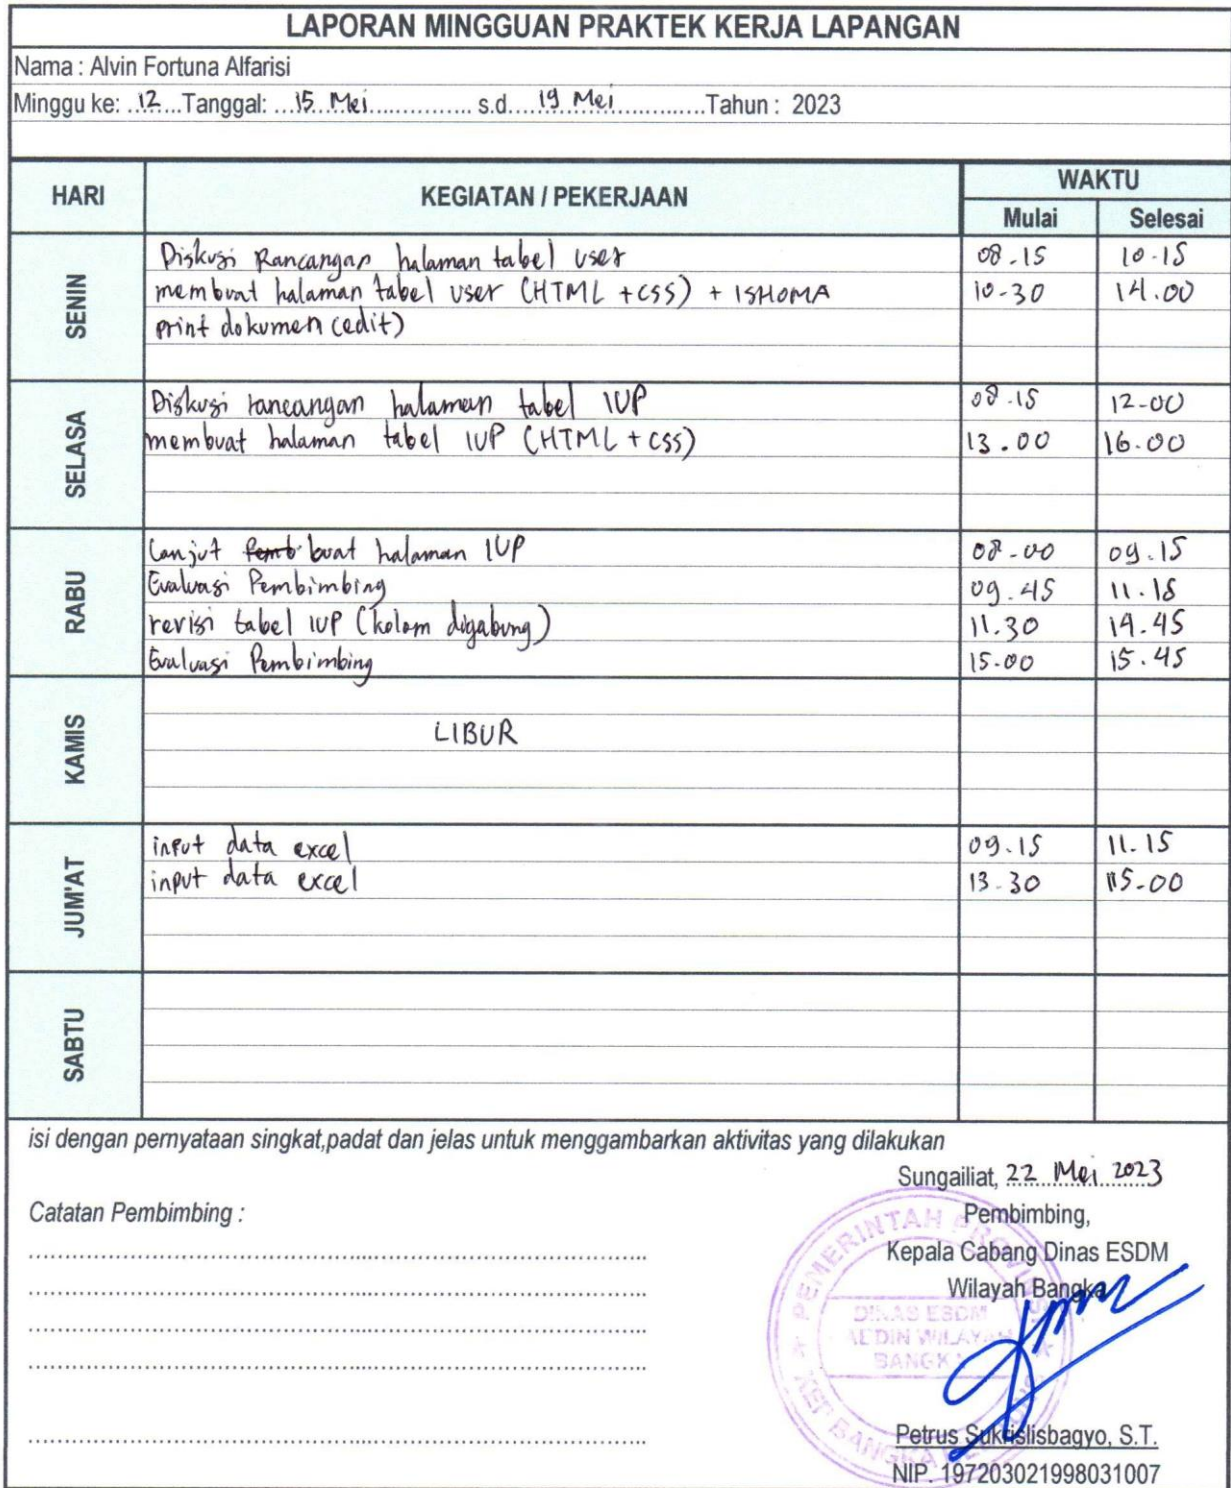 LAPORAN MINGGUAN PRAKTEK KERJA LAPANGAN
Nama : Alvin Fortuna Alfarisi
Minggu ke: ..12...Tanggal: ...15 Mei............... s.d....19 Mei.............Tahun : 2023
HARI KEGIATAN / PEKERJAAN WAKTU
Mulai Selesai
SENIN
Diskusi Rancangan halaman tabel user 08.15 10.15
membuat halaman tabel user (HTML + CSS) + ISHOMA 10.30 14.00
print dokumen (edit)
SELASA
Diskusi rancangan halaman tabel IUP 08.15 12.00
membuat halaman tabel IUP (HTML + CSS) 13.00 16.00
RABU
Lanjut buat halaman IUP 08.00 09.15
Evaluasi Pembimbing 09.45 11.15
revisi tabel IUP (kolom digabung) 11.30 14.45
Evaluasi Pembimbing 15.00 15.45
KAMIS
LIBUR
JUM'AT
input data excel 09.15 11.15
input data excel 13.30 15.00
SABTU
isi dengan pernyataan singkat,padat dan jelas untuk menggambarkan aktivitas yang dilakukan
Sungailiat, 22 Mei 2023
Catatan Pembimbing :
Pembimbing,
Kepala Cabang Dinas ESDM
Wilayah Bangka
PEMERINTAH PROVINSI
DINAS ESDM
WILAYAH
BANGKA
KEP BANGKA
Petrus Sukrislisbagyo, S.T.
NIP. 197203021998031007